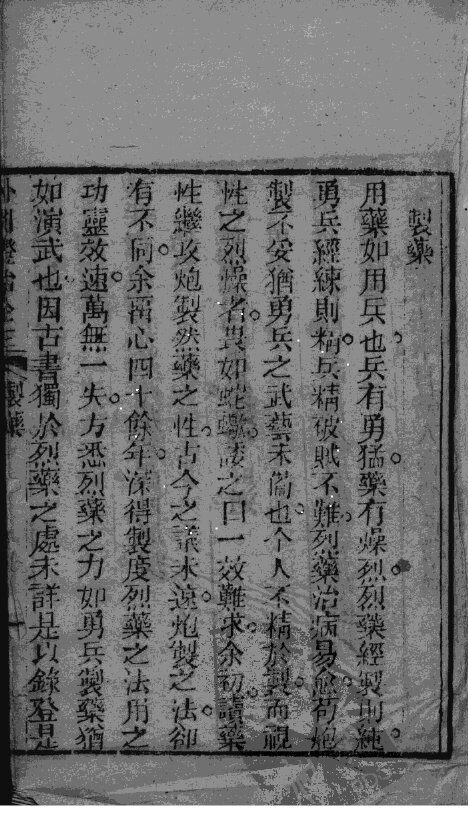 製藥
用藥如用兵也兵有勇猛藥有燥烈烈藥經製則純
勇兵經練則精兵精破賊不難烈藥治病易愈苟炮
製不妥猶勇兵之武藝未閑也今人不精於製而視
性之烈燥者畏如蛇蠍諉之曰一效難求余初讀藥
性繼攻炮製然藥之性古今之議未遠炮製之法卻
有不同余留心四十餘年深得製度烈藥之法用之
功靈效速萬無一失方悉烈藥之力如勇兵製藥猶
如演武也因古書獨於烈藥之處未詳是以錄登是
外科證治全 製藥